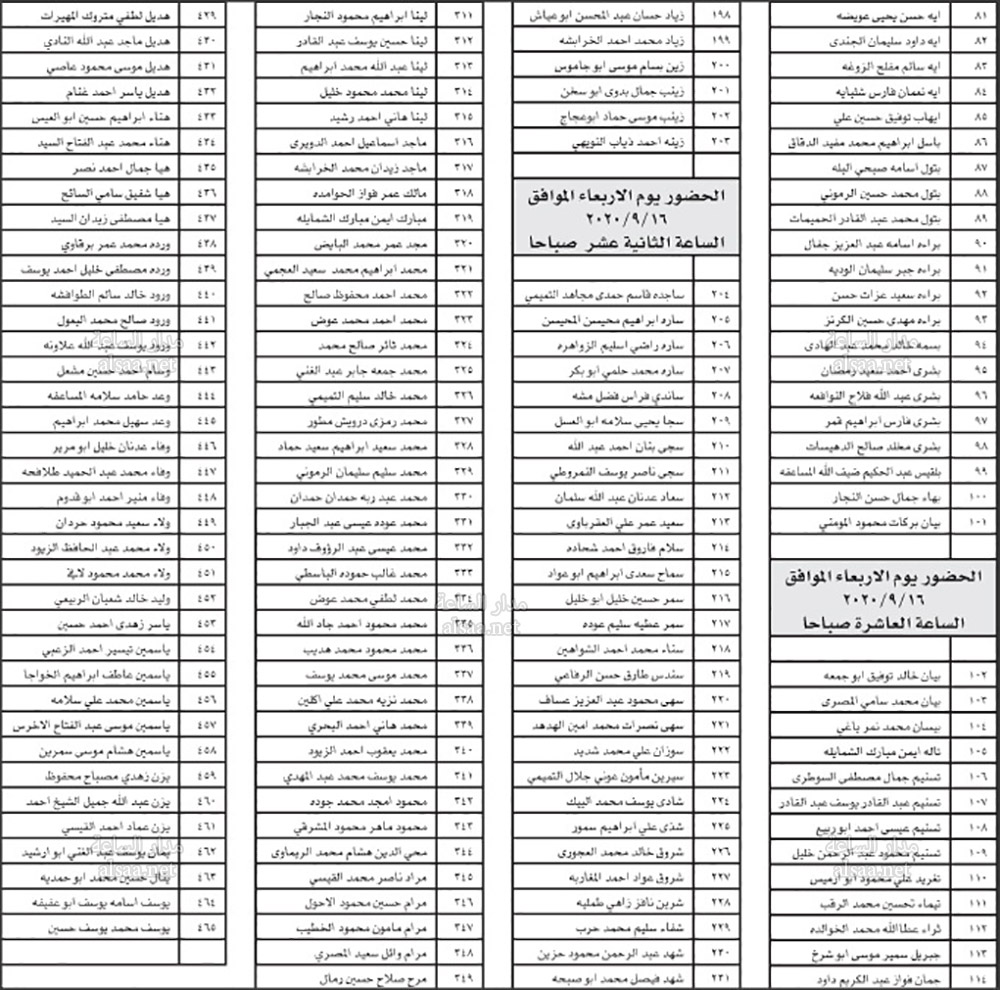 ٨١ ايه حسن يحيى عويضه
٨٢ ايه داود سليمان الجندي
٨٣ ايه سالم مفلح الزوغه
٨٤ ايه نعمان فارس شلبايه
٨٥ ايهاب توفيق حسين علي
٨٦ باسل ابراهيم محمد مفيد الدقاق
٨٧ بتول اسامه صبحي البله
٨٨ بتول محمد حسين الرموني
٨٩ بتول محمد عبد القادر الحميمات
٩٠ براءه اسامه عبد العزيز جفال
٩١ براءه جبر سليمان الوديه
٩٢ براءه سعيد عزات حسن
٩٣ براءه مهدي حسين الكرنز
٩٤ بسمه خالد محمد عبد الهادي
٩٥ بشرى احمد سعيد رمضان
٩٦ بشرى عبد الله فلاح النوافعه
٩٧ بشرى فارس ابراهيم قمر
٩٨ بشرى مخلد صالح الدهيسات
٩٩ بلقيس عبد الحكيم ضيف الله المساعفه
١٠٠ بهاء جمال حسن النجار
١٠١ بيان بركات محمود المومني
الحضور يوم الاربعاء الموافق
٢٠٢٠/٩/١٦
الساعة العاشرة صباحا
١٠٢ بيان خالد توفيق ابو جمعه
١٠٣ بيان محمد سامي المصري
١٠٤ بيسان محمد نمر ياغي
١٠٥ تاله ايمن مبارك الشمايله
١٠٦ تسنيم جمال مصطفى السوطري
١٠٧ تسنيم عبد القادر يوسف عبد القادر
١٠٨ تسنيم عيسى احمد ابو ربيع
١٠٩ تسنيم محمود عبد الرحمن خليل
١١٠ تغريد علي محمود ابو ارميس
١١١ تيماء تحسين محمد الرقب
١١٢ ثراء عطاالله محمد الخوالده
١١٣ جبريل سمير موسى ابو شرخ
١١٤ جمان فواز عبد الكريم داود
١٩٨ زياد حسان عبد المحسن ابو عياش
١٩٩ زياد محمد احمد الخرابشه
٢٠٠ زين بسام موسى ابو جاموس
٢٠١ زينب جمال بدوي ابو سخن
٢٠٢ زينب موسى حماد ابوعجاج
٢٠٣ زينه احمد ذياب النويهي
الحضور يوم الاربعاء الموافق
٢٠٢٠/٩/١٦
الساعة الثانية عشر صباحا
٢٠٤ ساجده قاسم حمدي مجاهد التميمي
٢٠٥ ساره ابراهيم محيسن المحيسن
٢٠٦ ساره راضي اسليم الزواهره
٢٠٧ ساره محمد حلمي ابو بكر
٢٠٨ ساندي فراس فضل مشه
٢٠٩ سجا يحيى سلامه ابو العسل
٢١٠ سجى بنان احمد عبد الله
٢١١ سجى ناصر يوسف النمروطي
٢١٢ سعاد عدنان عبد الله سلمان
٢١٣ سعيد عمر علي العقرباوي
٢١٤ سلام فاروق احمد شحاده
٢١٥ سماح سعدي ابراهيم ابو عواد
٢١٦ سمر حسين خليل ابو خليل
٢١٧ سمر عطيه سليم عوده
٢١٨ سناء محمد احمد الشواهين
٢١٩ سندس طارق حسن الرفاعي
٢٢٠ سهى محمود عبد العزيز عساف
٢٢١ سهى نصرات محمد امين الهدهد
٢٢٢ سوزان علي محمد شديد
٢٢٣ سيرين مأمون عوني جلال التميمي
٢٢٤ شادي يوسف محمد البيك
٢٢٥ شذى علي ابراهيم سمور
٢٢٦ شروق خالد محمد العجوري
٢٢٧ شروق عواد احمد المغاربه
٢٢٨ شرين نافز زاهي طمليه
٢٢٩ شفاء سليم محمد حرب
٢٣٠ شهد عبد الرحمن محمود حزين
٢٣١ شهد فيصل محمد ابو صبحه
٣١١ لينا ابراهيم محمود النجار
٣١٢ لينا حسين يوسف عبد القادر
٣١٣ لينا عبد الله محمد ابراهيم
٣١٤ لينا محمد محمود خليل
٣١٥ لينا هاني احمد رشيد
٣١٦ ماجد اسماعيل احمد الدويري
٣١٧ ماجد زيدان محمد الخرابشه
٣١٨ مالك عمر فواز الحوامده
٣١٩ مبارك ايمن مبارك الشمايله
٣٢٠ مجد عمر محمد البايض
٣٢١ محمد ابراهيم محمد سعيد العجمي
٣٢٢ محمد احمد محفوظ صالح
٣٢٣ محمد احمد محمد عوض
٣٢٤ محمد ثائر صالح محمد
٣٢٥ محمد جمعه جابر عبد الغني
٣٢٦ محمد خالد سليم التميمي
٣٢٧ محمد رمزي درويش مطور
٣٢٨ محمد سعيد ابراهيم سعيد حماد
٣٢٩ محمد سليم سليمان الرموني
٣٣٠ محمد عبد ربه حمدان حمدان
٣٣١ محمد عوده عيسى عبد الجبار
٣٣٢ محمد عيسى عبد الرؤوف داود
٣٣٣ محمد غالب حموده الباسطي
٣٣٤ محمد لطفي محمد عوض
٣٣٥ محمد محمود احمد جاد الله
٣٣٦ محمد محمود محمد هديب
٣٣٧ محمد موسى محمد يوسف
٣٣٨ محمد نزيه محمد علي اكلين
٣٣٩ محمد هاني احمد البحري
٣٤٠ محمد يعقوب احمد الزيود
٣٤١ محمد يوسف محمد عبد المهدي
٣٤٢ محمود امجد محمد جوده
٣٤٣ محمود ماهر محمود المشرقي
٣٤٤ محي الدين هشام محمد الريماوي
٣٤٥ مراد ناصر محمد القيسي
٣٤٦ مرام حسين محمود الاحول
٣٤٧ مرام مامون محمود الخطيب
٣٤٨ مرام وائل سعيد المصري
٣٤٩ مرح صلاح حسين رمال
٤٢٩ هديل لطفي متروك المهيرات
٤٣٠ هديل ماجد عبد الله النادي
٤٣١ هديل موسى محمود عاصي
٤٣٢ هديل ياسر احمد غنام
٤٣٣ هناء ابراهيم حسين ابو العيس
٤٣٤ هناء محمد عبد الفتاح السيد
٤٣٥ هيا جمال احمد نصر
٤٣٦ هيا شفيق سامي السائح
٤٣٧ هيا مصطفى زيدان السيد
٤٣٨ ورده محمد عمر برقاوي
٤٣٩ ورده مصطفى خليل احمد يوسف
٤٤٠ ورود خالد سالم الطوافشه
٤٤١ ورود صالح محمد البعول
٤٤٢ ورود يوسف عبد الله علاونه
٤٤٣ وسام احمد حسين مشعل
٤٤٤ وعد حامد سلامه المساعفه
٤٤٥ وعد سهيل محمد ابراهيم
٤٤٦ وفاء عدنان خليل ابو مرير
٤٤٧ وفاء محمد عبد الحميد طلافحه
٤٤٨ وفاء منير احمد ابو قدوم
٤٤٩ ولاء سعيد محمود حردان
٤٥٠ ولاء محمد عبد الحافظ الزيود
٤٥١ ولاء محمد محمود لافي
٤٥٢ وليد خالد شعبان الربيعي
٤٥٣ ياسر زهدي احمد حسين
٤٥٤ ياسمين تيسير احمد الزعبي
٤٥٥ ياسمين عاطف ابراهيم الخواجا
٤٥٦ ياسمين محمد علي سلامه
٤٥٧ ياسمين موسى عبد الفتاح الاخرس
٤٥٨ ياسمين هشام موسى سمرين
٤٥٩ يزن زهدي مصباح محفوظ
٤٦٠ يزن عبد الله جميل الشيخ احمد
٤٦١ يزن عماد احمد القيسي
٤٦٢ يمان يوسف عبد الغني ابو ارشيد
٤٦٣ ينال حسين محمد ابو حمديه
٤٦٤ يوسف اسامه يوسف ابو عفيفه
٤٦٥ يوسف محمد يوسف حسين
مدار الساعة
alsaa.net
مدار الساعة
alsaa.net
مدار الساعة
alsaa.net
مدار الساعة
alsaa.net
مدار الساعة
alsaa.net